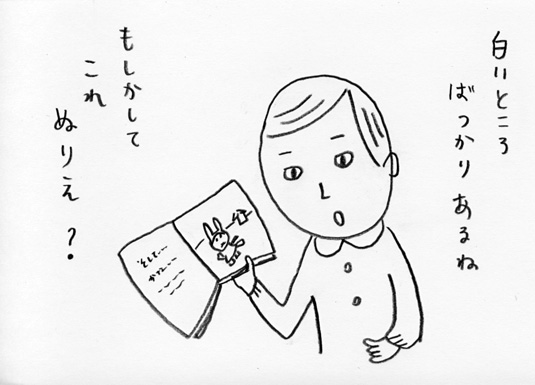 白いところ
ばっかりあるね
もしかして
これ
ぬりえ?
そして…